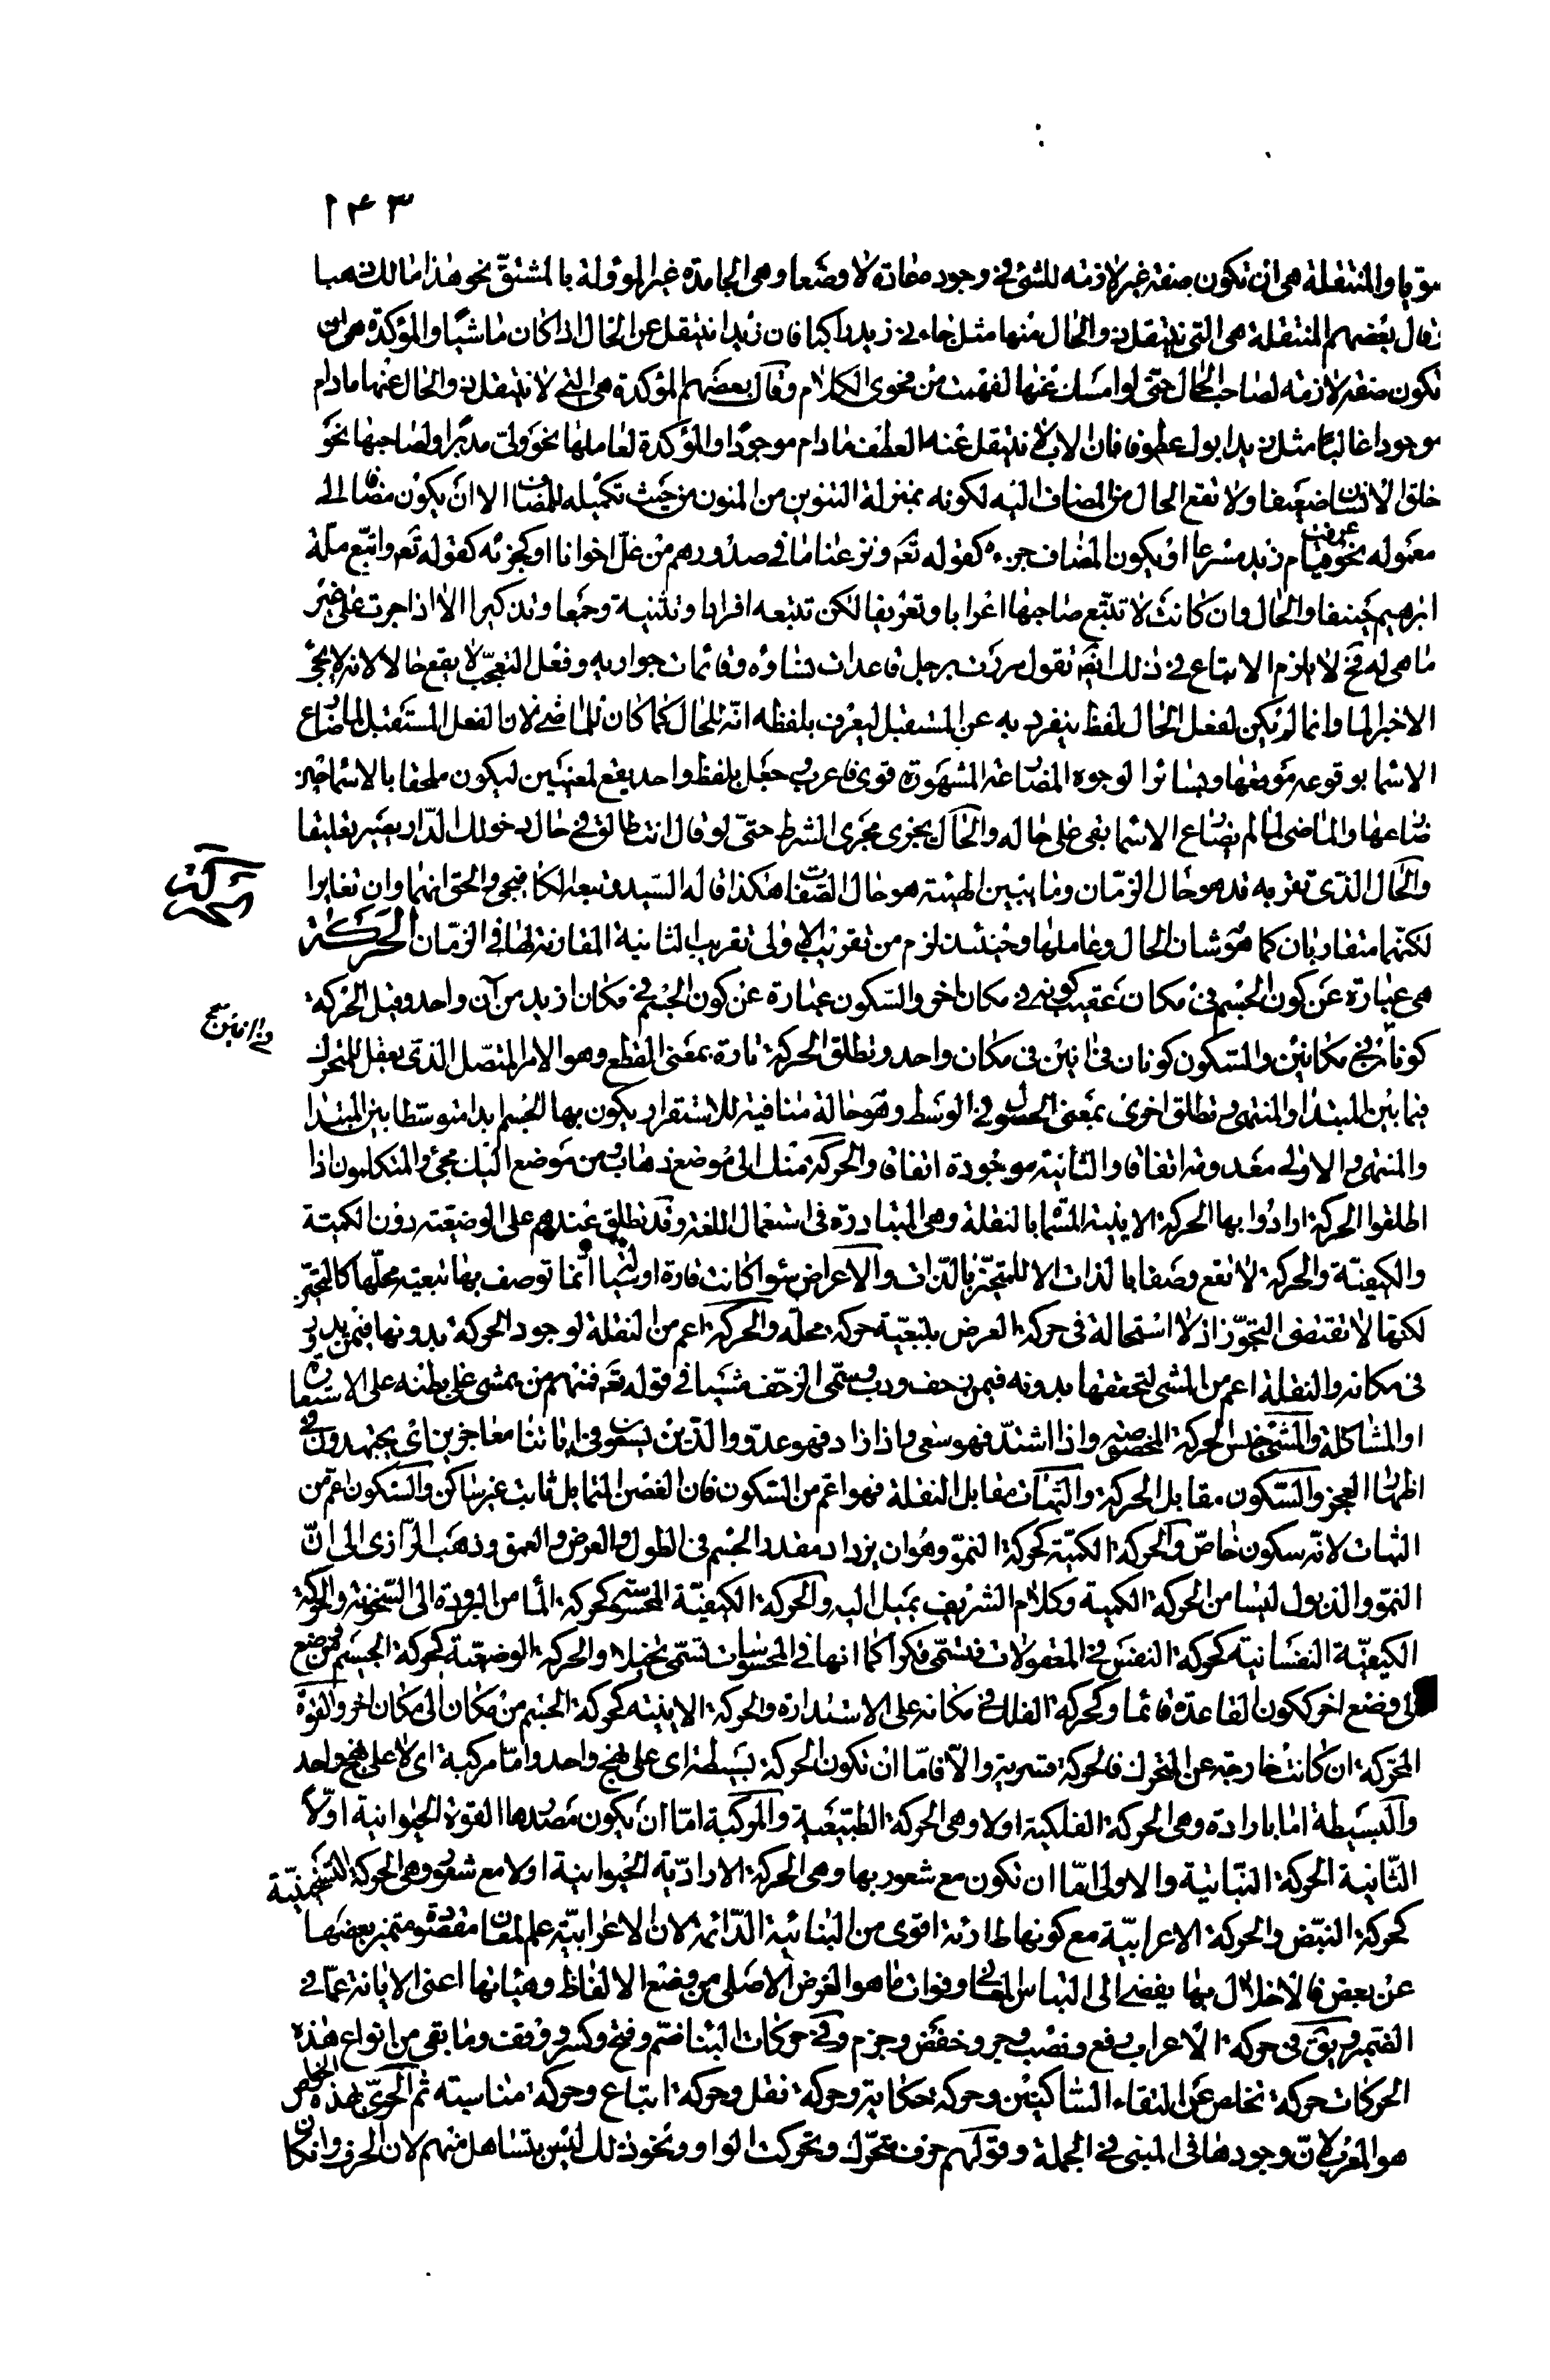 ١٤٣
سويا والمنتقلة هى ان تكون صفة غير لازمة للشئ فى وجوده عادة لا وضعا وهى الجامدة غير المؤولة بالمشتق نحو هذا مالك ذهبا
وقال بعضهم المنتقلة هى التى ينتقل ذو الحال منها مثل جاءنى زيد راكبا فان زيدا ينتقل عن الحال اذا كان ماشيا والمؤكدة هى ان
تكون صفة لازمة لصاحب الحال حتى لو امسك عنها لفهمت من فحوى الكلام وقال بعضهم المؤكدة هى التى لا ينتقل ذو الحال عنها مادام
موجودا غالبا مثل زيد ابوك عطوفا فان الاب لا ينتقل عنه العطف مادام موجودا والمؤكدة لعاملها نحو ولى مدبرا ولصاحبها نحو
خلق الانسان ضعيفا ولا تقع الحال من المضاف اليه لكونه بمنزلة التنوين من المنون من حيث تكميله للمضاف الا ان يكون مضافا الى
معموله نحو عرفت قيام زيد مسرعا او يكون المضاف جزءه كقوله تعم ونزعنا ما فى صدورهم من غل اخوانا او كجزئه كقوله تعم واتبع ملة
ابرهيم حنيفا والحال وان كانت لا تتبع صاحبها اعرابا وتعريفا لكن تتبعه افرادا وتثنية وجمعا وتذكيرا الا اذا جرت على غير
ما هى له فح لا يلزم الاتباع فى ذلك ايضا تقول مررت برجل قاعدات نساؤه وقائمات جواريه وفعل التعجب لا يقع حالا لانه لا يجئ
الا خبرا لما وانما لم يكن لفعل الحال لفظ ينفرد به عن المستقبل ليعرف بلفظه انه للحال كما كان للماضى لان الفعل المستقبل لما ضارع
الاسماء بوقوعه موقعها وبسائر الوجوه المضارعة المشهورة قوى فاعرب وجعل بلفظ واحد يقع لمعنيين ليكون ملحقا بالاسماء حين
ضارعها والماضى لما لم يضارع الاسماء بقى على حاله والحال يجرى مجرى الشرط حتى لو قال انت طالق فى حال دخولك الدار يصير تعليقا
والحال الذى تقربه قد هو حال الزمان وما يبين الهيئة هو حال الصفات هكذا قاله السيد وتبعه الكافيجى والحق انهما وان تغايرا
لكنهما متقاربان كما هو شان الحال وعاملها وحينئذ لزم من تقريب الاولى تقريب الثانية المقارنة لها فى الزمان الحركة
الحركة
هى عبارة عن كون الجسم فى مكان عقيب كونه فى مكان اخر والسكون عبارة عن كون الجسم فى مكان ازيد من آن واحد وقيل الحركة
كونان فى مكانين والسكون كونان فى انين فى مكان واحد وتطلق الحركة تارة بمعنى القطع وهو الامر المتصل الذى يعقل للمتحرك
فيما بين المبتدا والمنتهى وتطلق اخرى بمعنى الحصول فى الوسط وهو حالة منافية للاستقرار يكون بها الجسم ابدا متوسطا بين المبتدا
والمنتهى والاولى معدومة اتفاقا والثانية موجودة اتفاقا والحركة منك الى موضع ذهاب ومن موضع اليك مجئ والمتكلمون اذا
اطلقوا الحركة ارادوا بها الحركة الاينية المسماة بالنقلة وهى المتبادرة فى استعمال اللغة وقد تطلق عندهم على الوضعية دون الكمية
والكيفية والحركة لا تقع وصفا بالذات الا للمتحيز بالذات والاعراض سواء كانت قارة او سيالة انما توصف بها تبعية محلها كالتحيز
لكنها لا تقتضى التجوز اذ لا استحالة فى حركة العرض بتبعية حركة محله والحركة اعم من النقلة لوجود الحركة بدونها فيمن يدور
فى مكانه والنقلة اعم من المشى لتحققها بدونه فيمن زحف ودب وسمى الزحف مشيا فى قوله تعم فمنهم من يمشى على بطنه على الاستعارة
او المشاكلة والمشى جنس الحركة المخصوصة واذا اشتد فهو سعى واذا زاد فهو عدو والذين يسعون فى اياتنا معاجزين اى يجتهدون فى
اظهار العجز والسكون مقابل الحركة والثبات مقابل النقلة فهو اعم من السكون فان الغصن المتمايل ثابت غير ساكن والسكون اعم من
الثبات لانه سكون خاص والحركة الكمية كحركة النمو وهو ان يزداد مقدار الجسم فى الطول والعرض والعمق وذهب الرازى الى ان
النمو والذبول ليسا من الحركة الكمية وكلام الشريف يميل اليه والحركة الكيفية المحسوسة كحركة الماء من البرودة الى السخونة والحركة
الكيفية النفسانية كحركة النفس فى المعقولات فتسمى فكرا كما انها فى المحسوسات تسمى تخيلا والحركة الوضعية كحركة الجسم من وضع
الى وضع اخر ككون القاعدة قائما وكحركة الفلك فى مكانه على الاستدارة والحركة الاينية كحركة الجسم من مكان الى مكان اخر والقوة
المحركة ان كانت خارجة عن المتحرك فالحركة قسرية والا فاما ان تكون الحركة بسيطة اى على نهج واحد واما مركبة اى لا على نهج واحد
والبسيطة اما بارادة وهى الحركة الفلكية اولا وهى الحركة الطبيعية والمركبة اما ان يكون مصدرها القوة الحيوانية اولا
الثانية الحركة النباتية والاولى اما ان تكون مع شعور بها وهى الحركة الارادية الحيوانية اولا مع شعور وهى الحركة التسخيرية
كحركة النبض والحركة الاعرابية مع كونها طارئة اقوى من البنائية الدائمة لان الاعرابية علم لمعان مقصودة متميز بعضها
عن بعض فالاخلال بها يفضى الى التباس المعانى وفوات ما هو الغرض الاصلى من وضع الالفاظ وهيئاتها اعنى الابانة عما فى
الضمير ويق فى حركة الاعراب رفع ونصب وجر وخفض وجزم وفى حركات البناء ضم وفتح وكسر ووقف وما بقى من انواع هذه
الحركات حركة تخلص عن التقاء الساكنين وحركة حكاية وحركة نقل وحركة اتباع وحركة مناسبة ثم الحرى بهذه الخواص
هو المعرب لان وجودها فى المبنى فى الجملة وقولهم حرف متحرك وتحركت الواو ونحو ذلك ليس بتساهل منهم لان الحرف وان كان